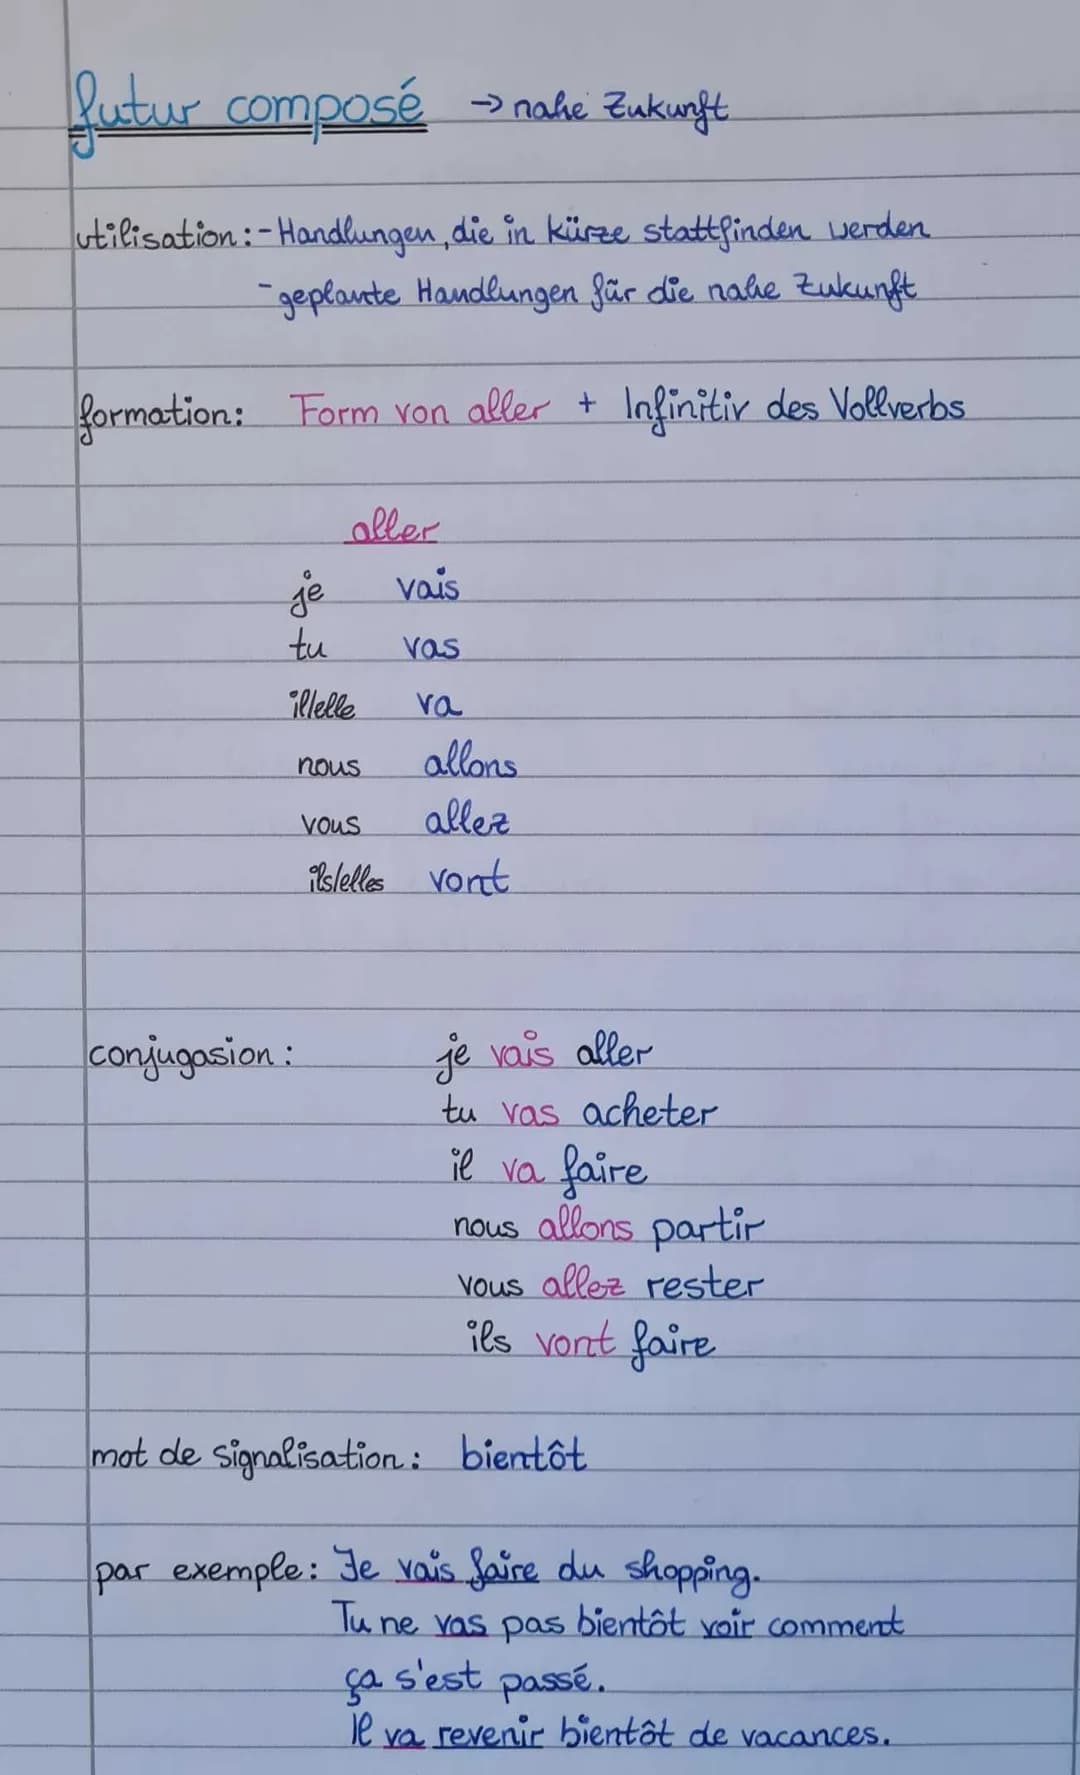 futur composé → nahe Zukunft
utilisation: - Handlungen, die in kürze stattfinden werden
- geplante Handlungen für die nahe Zukunft
formation: Form von aller + Infinitiv des Vollverbs
aller
je vais
tu vas
il/elle va
nous allons
vous allez
ils/elles vont
conjugasion: je vais aller
tu vas acheter
il va faire
nous allons partir
vous allez rester
ils vont faire
mot de signalisation: bientôt
par exemple: Je vais faire du shopping.
Tu ne vas pas bientôt voir comment
ça s'est passé.
Il va revenir bientôt de vacances.